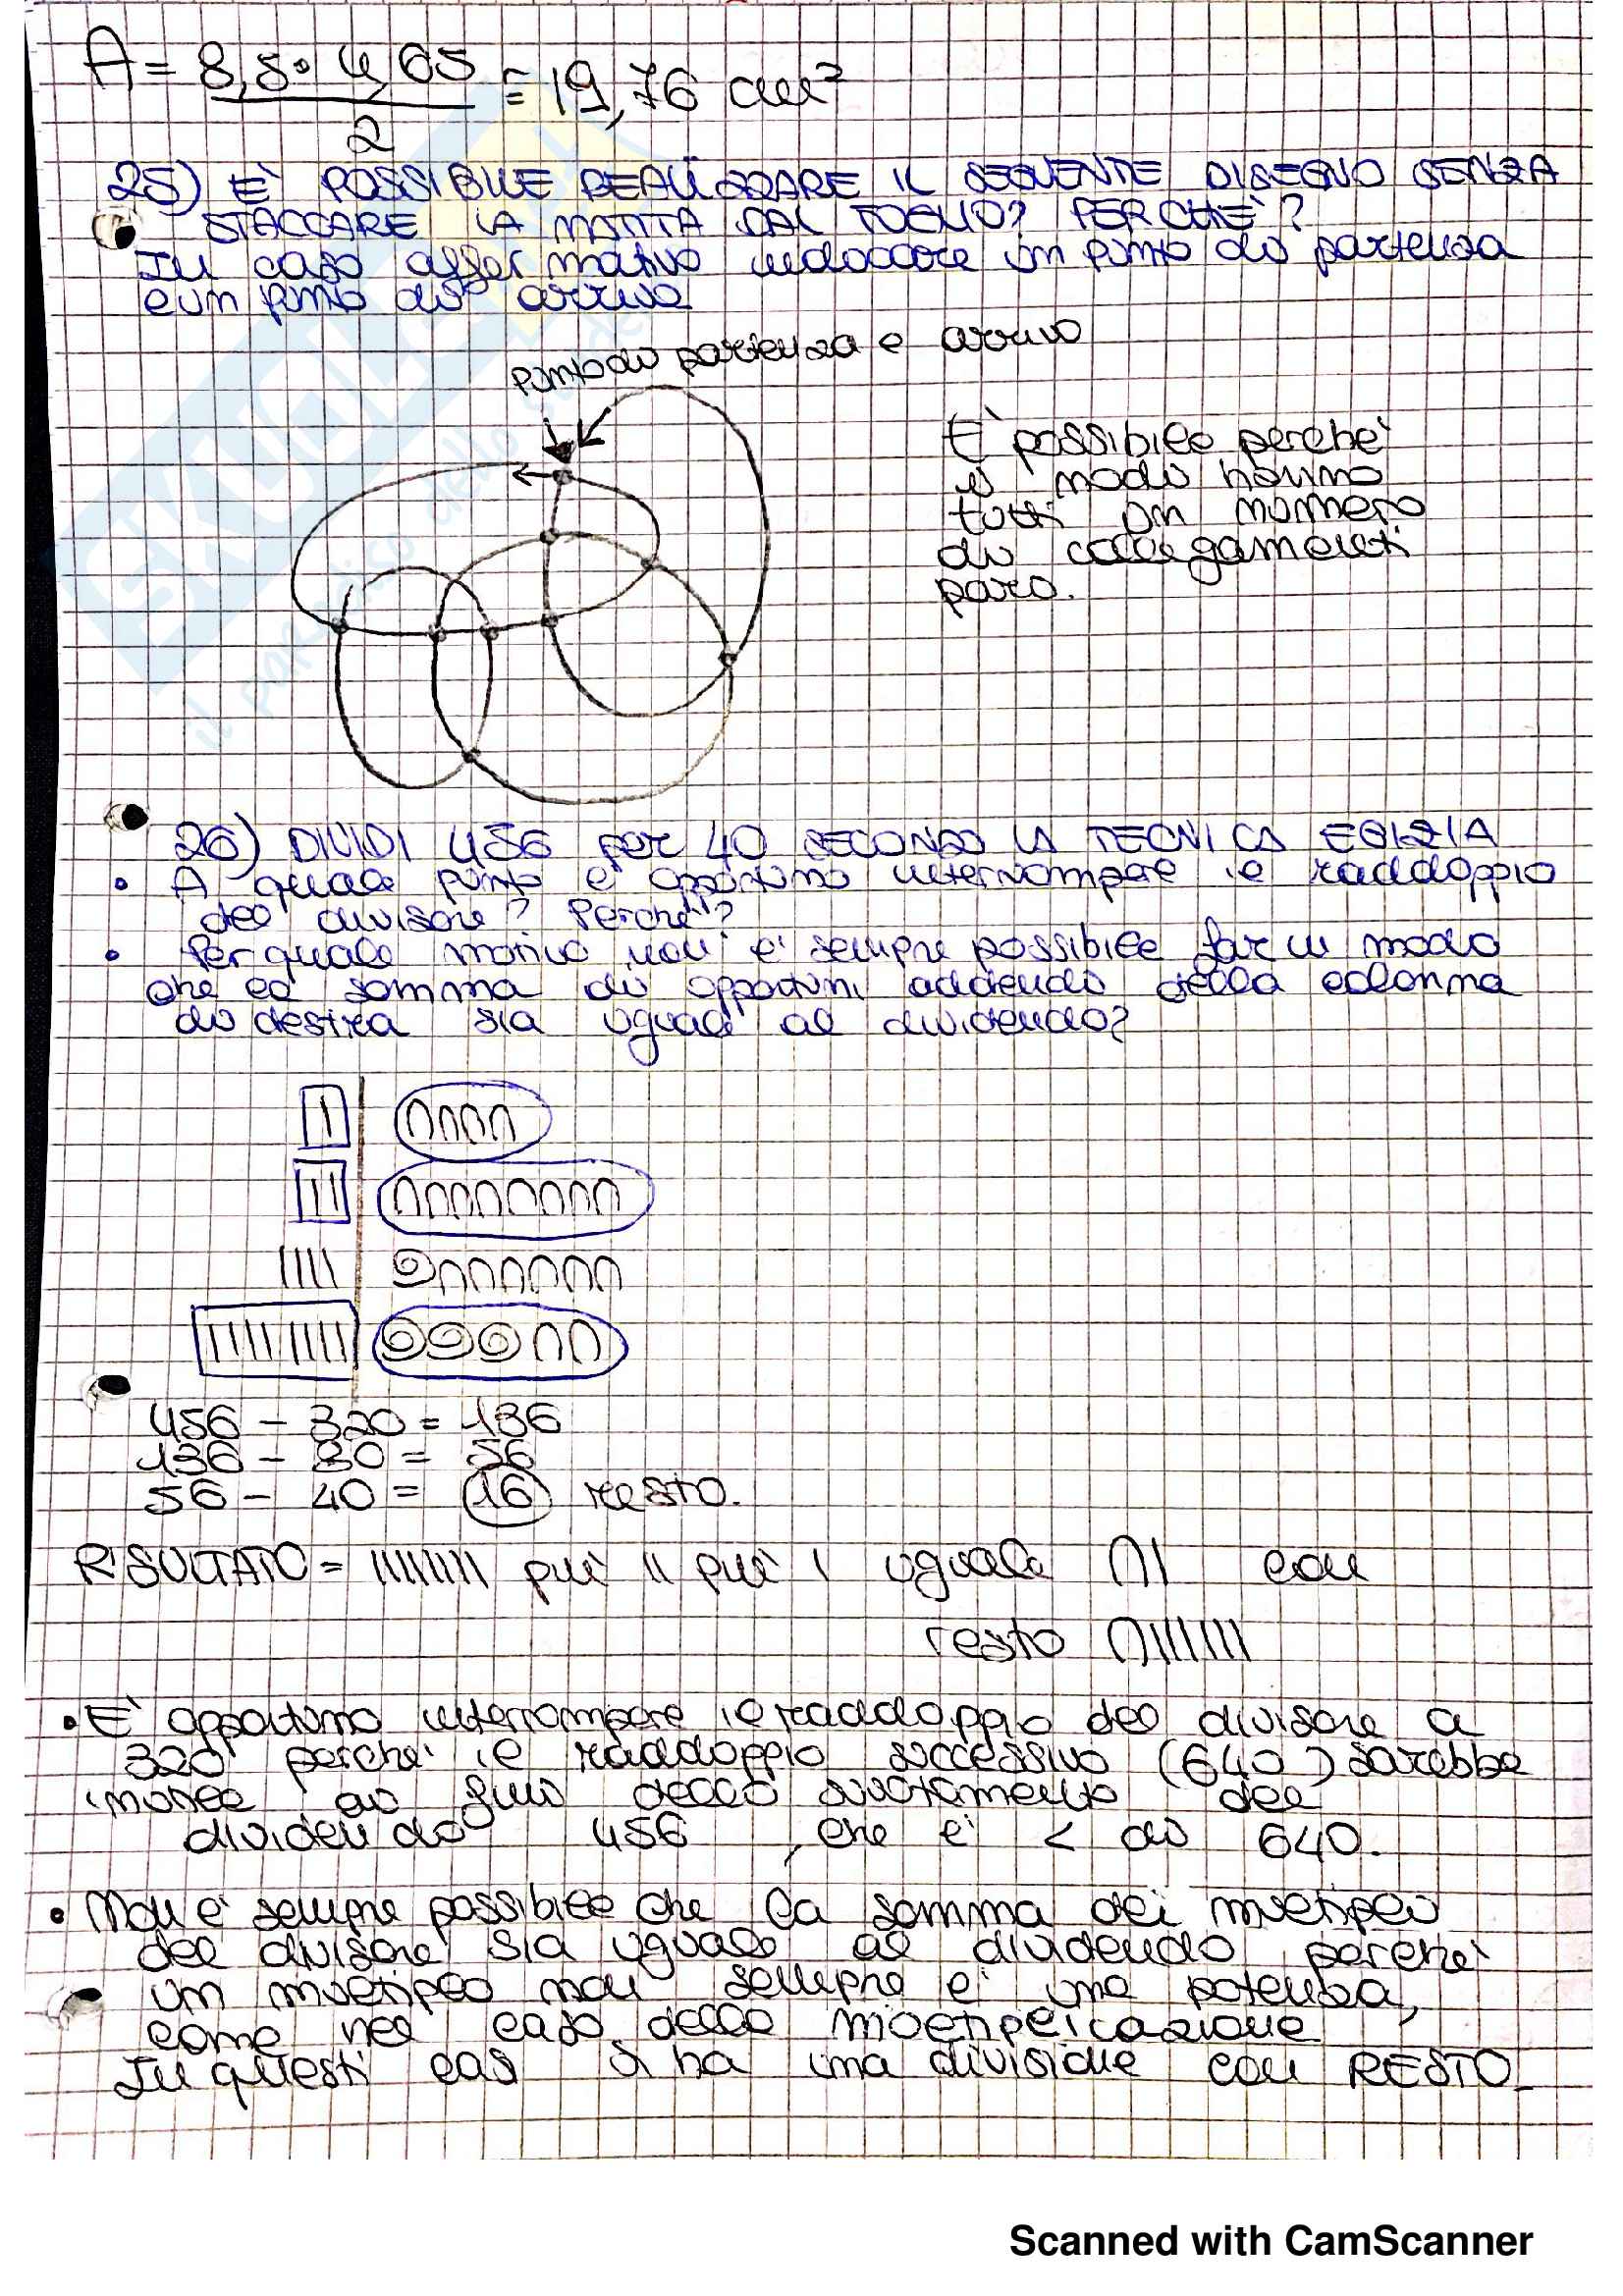 A = 8,5 • 4,65 = 19,76 cm²
2
25) E' POSSIBILE REALIZZARE IL SEGUENTE DISEGNO SENZA
STACCARE LA MATITA DAL FOGLIO? PERCHE'?
In caso affermativo indoccare un punto di partenza
e un punto di arrivo
punto di partenza e arrivo
E' possibile perche'
i nodi hanno
tutti un numero
di collegamenti
pari.
26) DIVIDI 456 per 40 SECONDO LA TECNICA EGIZIA
• A quale punto e' opportuno interrompere il raddoppio
del divisore? Perche'?
• Per quale motivo non e' sempre possibile far in modo
che la somma di opportuni addendi della colonna
di destra sia uguale al dividendo?
| ∩∩∩∩
|| ∩∩∩∩∩∩∩∩
|||| 𓍢∩∩∩∩∩∩
|||||||| 𓍢𓍢𓍢∩∩
456 - 320 = 136
136 - 80 = 56
56 - 40 = 16 resto.
RISULTATO = |||||||| piu' || piu' | uguale ∩| con
resto ∩||||||
• E' opportuno interrompere il raddoppio del divisore a
320 perche' il raddoppio successivo (640) sarebbe
inutile ai fini dello svuotamento del
dividendo 456, che e' < di 640.
• Non e' sempre possibile che la somma dei multipli
del divisore sia uguale al dividendo perche'
un multiplo non sempre e' una potenza,
come nel caso della moltiplicazione
In questi casi si ha una divisione con RESTO.
SKUOLA
il paradiso dello studente
Scanned with CamScanner